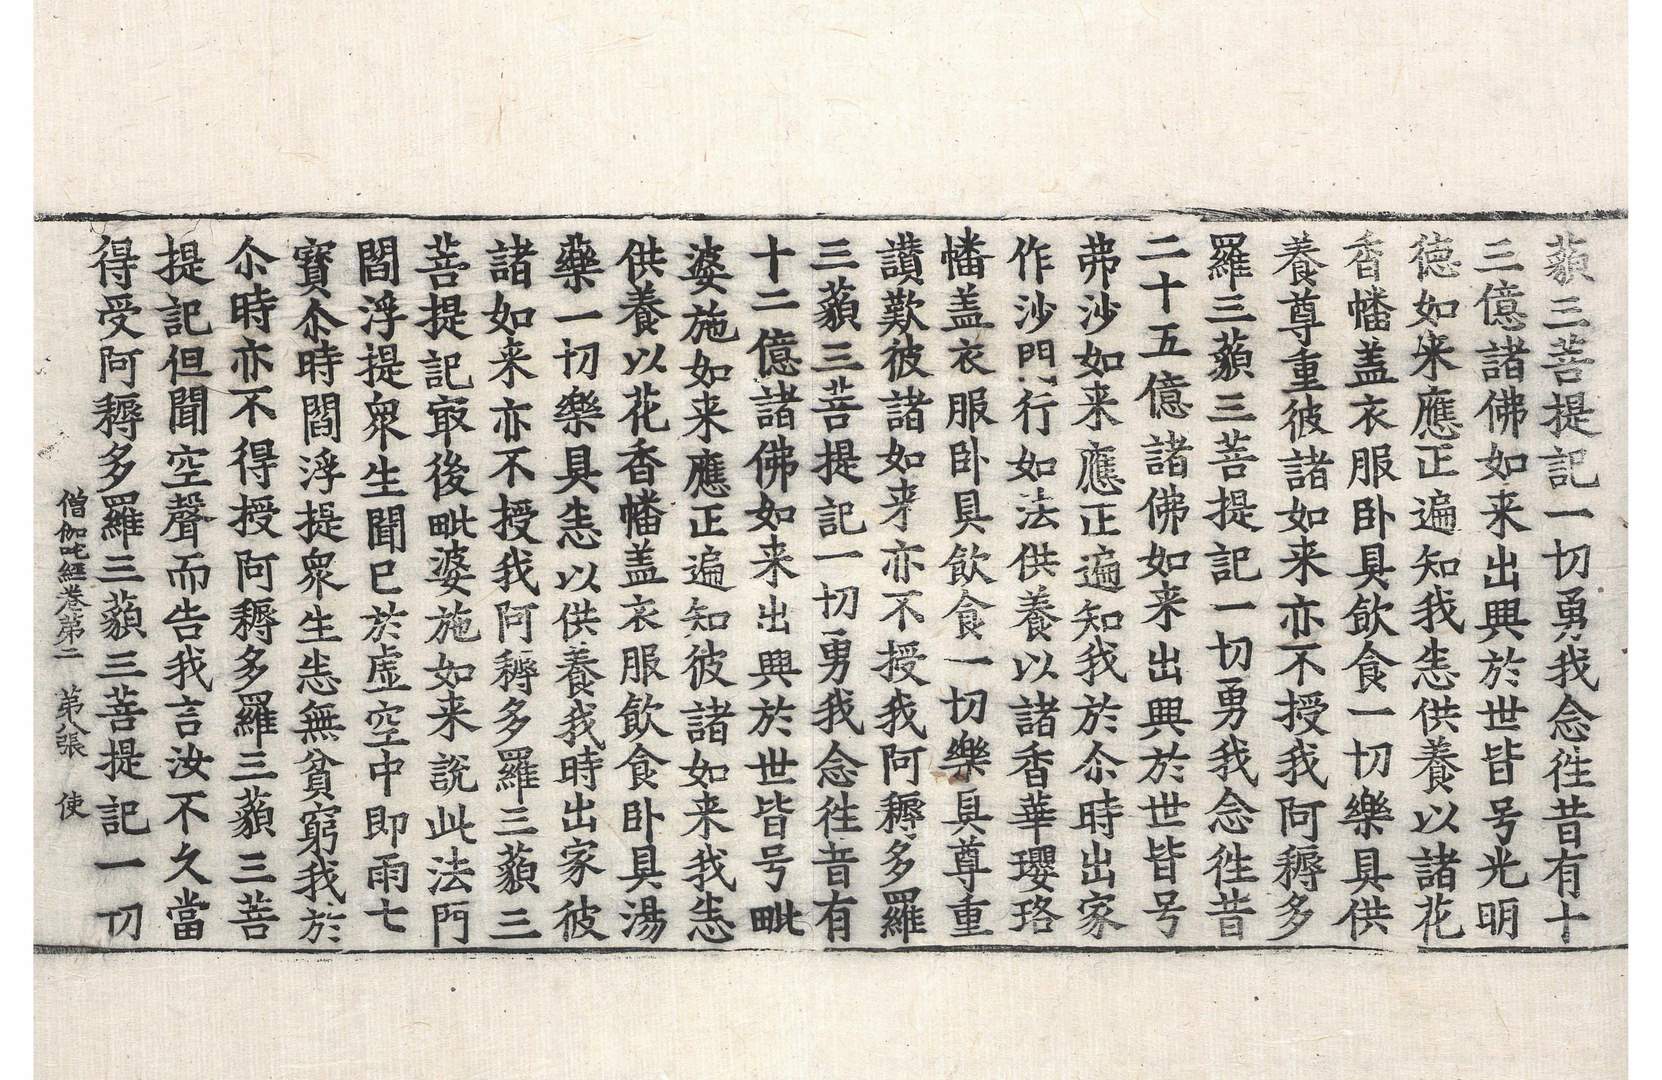 藐三菩提記一切勇我念徃昔有十
三億諸佛如来出興於世皆号光明
徳如来應正遍知我恙供養以諸花
香幡盖衣服卧具飲食一切樂具供
養尊重彼諸如来亦不授我阿耨多
羅三藐三菩提記一切勇我念徃昔
二十五億諸佛如来出興於世皆号
弗沙如来應正遍知我於尒時出家
作沙門行如法供養以諸香華瓔珞
幡盖衣服卧具飲食一切樂具尊重
讃歎彼諸如来亦不授我阿耨多羅
三藐三菩提記一切勇我念徃昔有
十二億諸佛如来出興於世皆号毗
婆施如来應正遍知彼諸如来我恙
供養以花香幡盖衣服飲食卧具湯
藥一切樂具恙以供養我時出家彼
諸如来亦不授我阿耨多羅三藐三
菩提記㝡後毗婆施如来說此法門
閻浮提衆生聞已於虚空中即雨七
寳尒時閻浮提衆生恙無貧窮我於
尒時亦不得授阿耨多羅三藐三菩
提記但聞空聲而告我言汝不久當
得受阿耨多羅三藐三菩提記一切
僧伽吒經卷第二　第八張　使